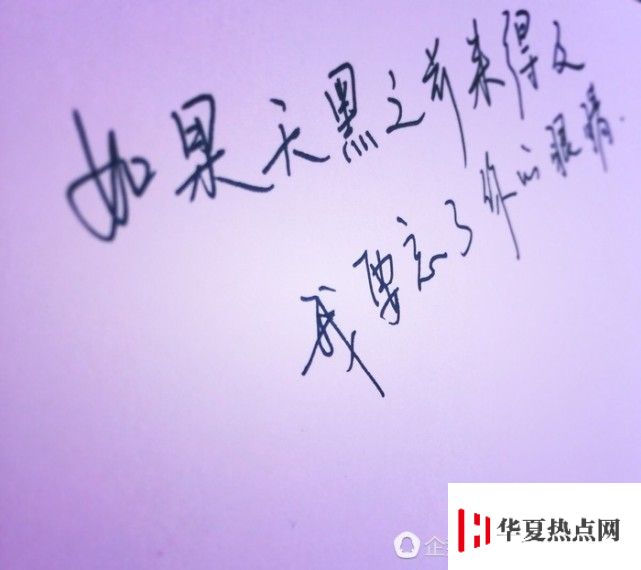 如果天黑之前来得及
我要忘了你的眼睛.
华夏热点网
企